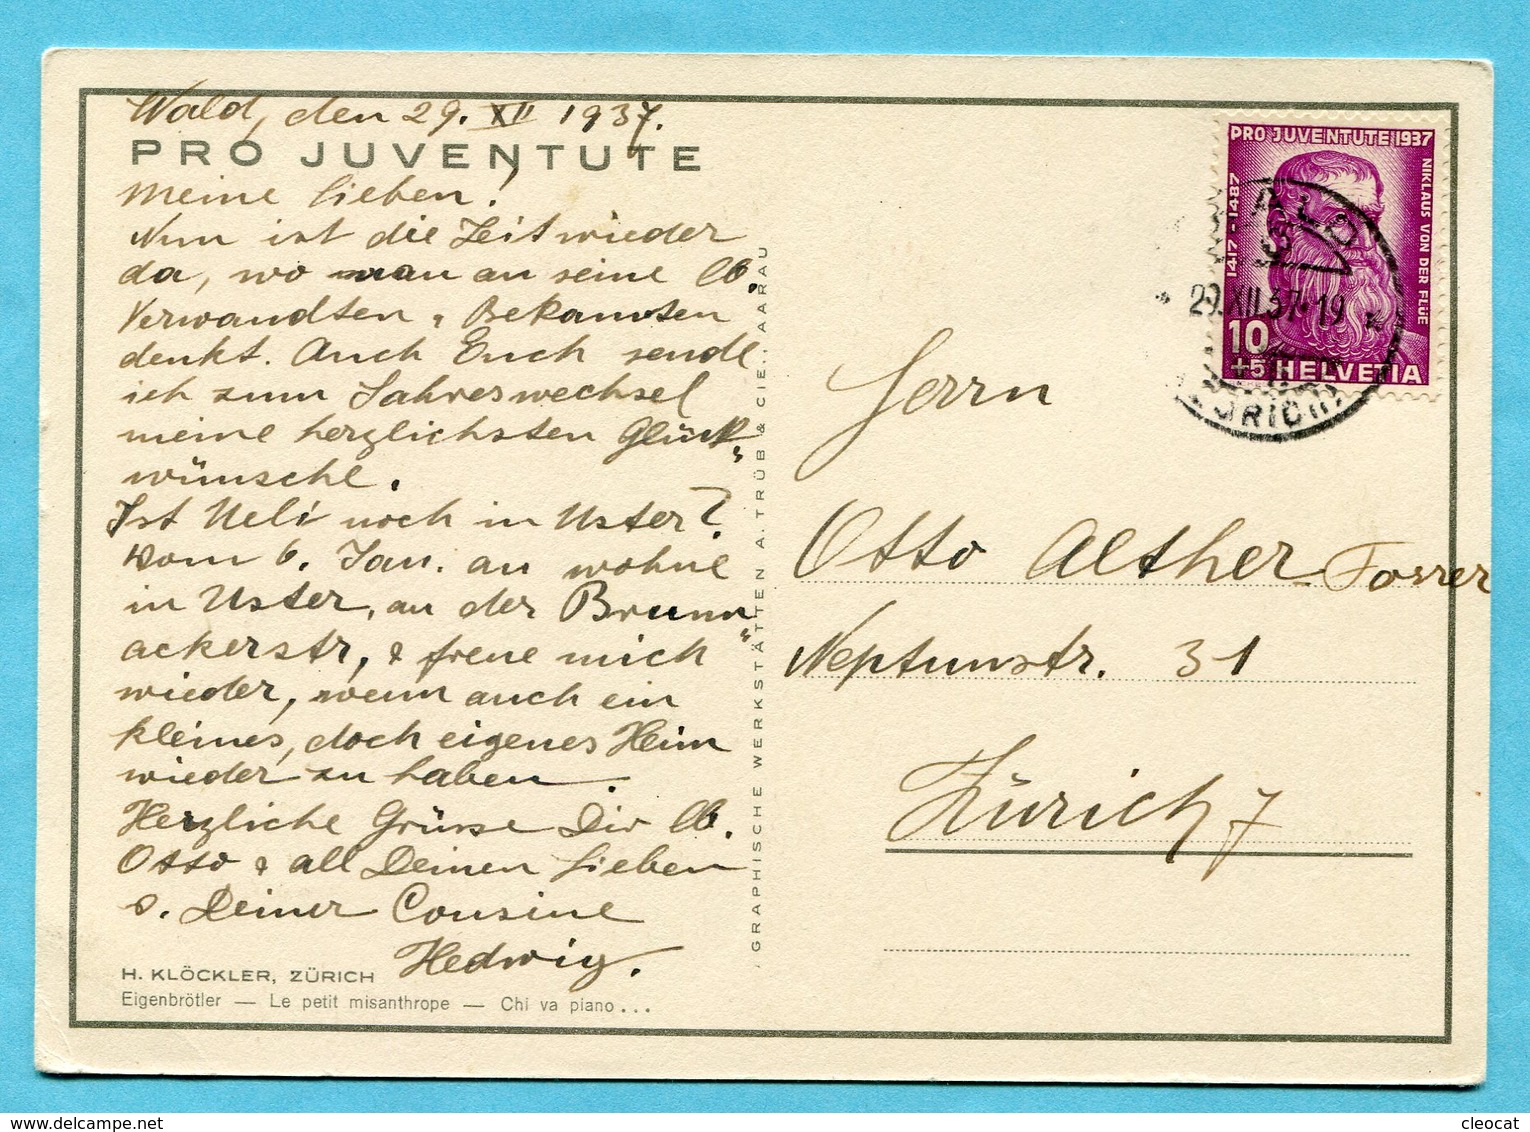 Wald, den 29. XII 1937.
PRO JUVENTUTE
Meine Lieben!
Nun ist die Zeit wieder
da, wo man an seine lb.
Verwandten & Bekannten
denkt. Auch Euch sende
ich zum Jahreswechsel
meine herzlichsten Glück-
wünsche.
Ist Ueli noch in Uster?
Vom 6. Jan. an wohne
in Uster, an der Brunn-
ackerstr, & freue mich
wieder, wenn auch ein
kleines, doch eigenes Heim
wieder zu haben.
Herzliche Grüsse Dir lb.
Otto & all Deinen Lieben
v. Deiner Cousine
Hedwig.
H. KLÖCKLER, ZÜRICH
Eigenbrötler — Le petit misanthrope — Chi va piano...
GRAPHISCHE WERKSTÄTTEN A. TRÜB & CIE., AARAU
PRO JUVENTUTE 1937
1417-1487
NIKLAUS VON DER FLÜE
10
+5 HELVETIA
WALD
29.XII.37-19
ZÜRICH
Herrn
Otto Alther-Forrer
Neptunstr. 31
Zürich 7
cleocat